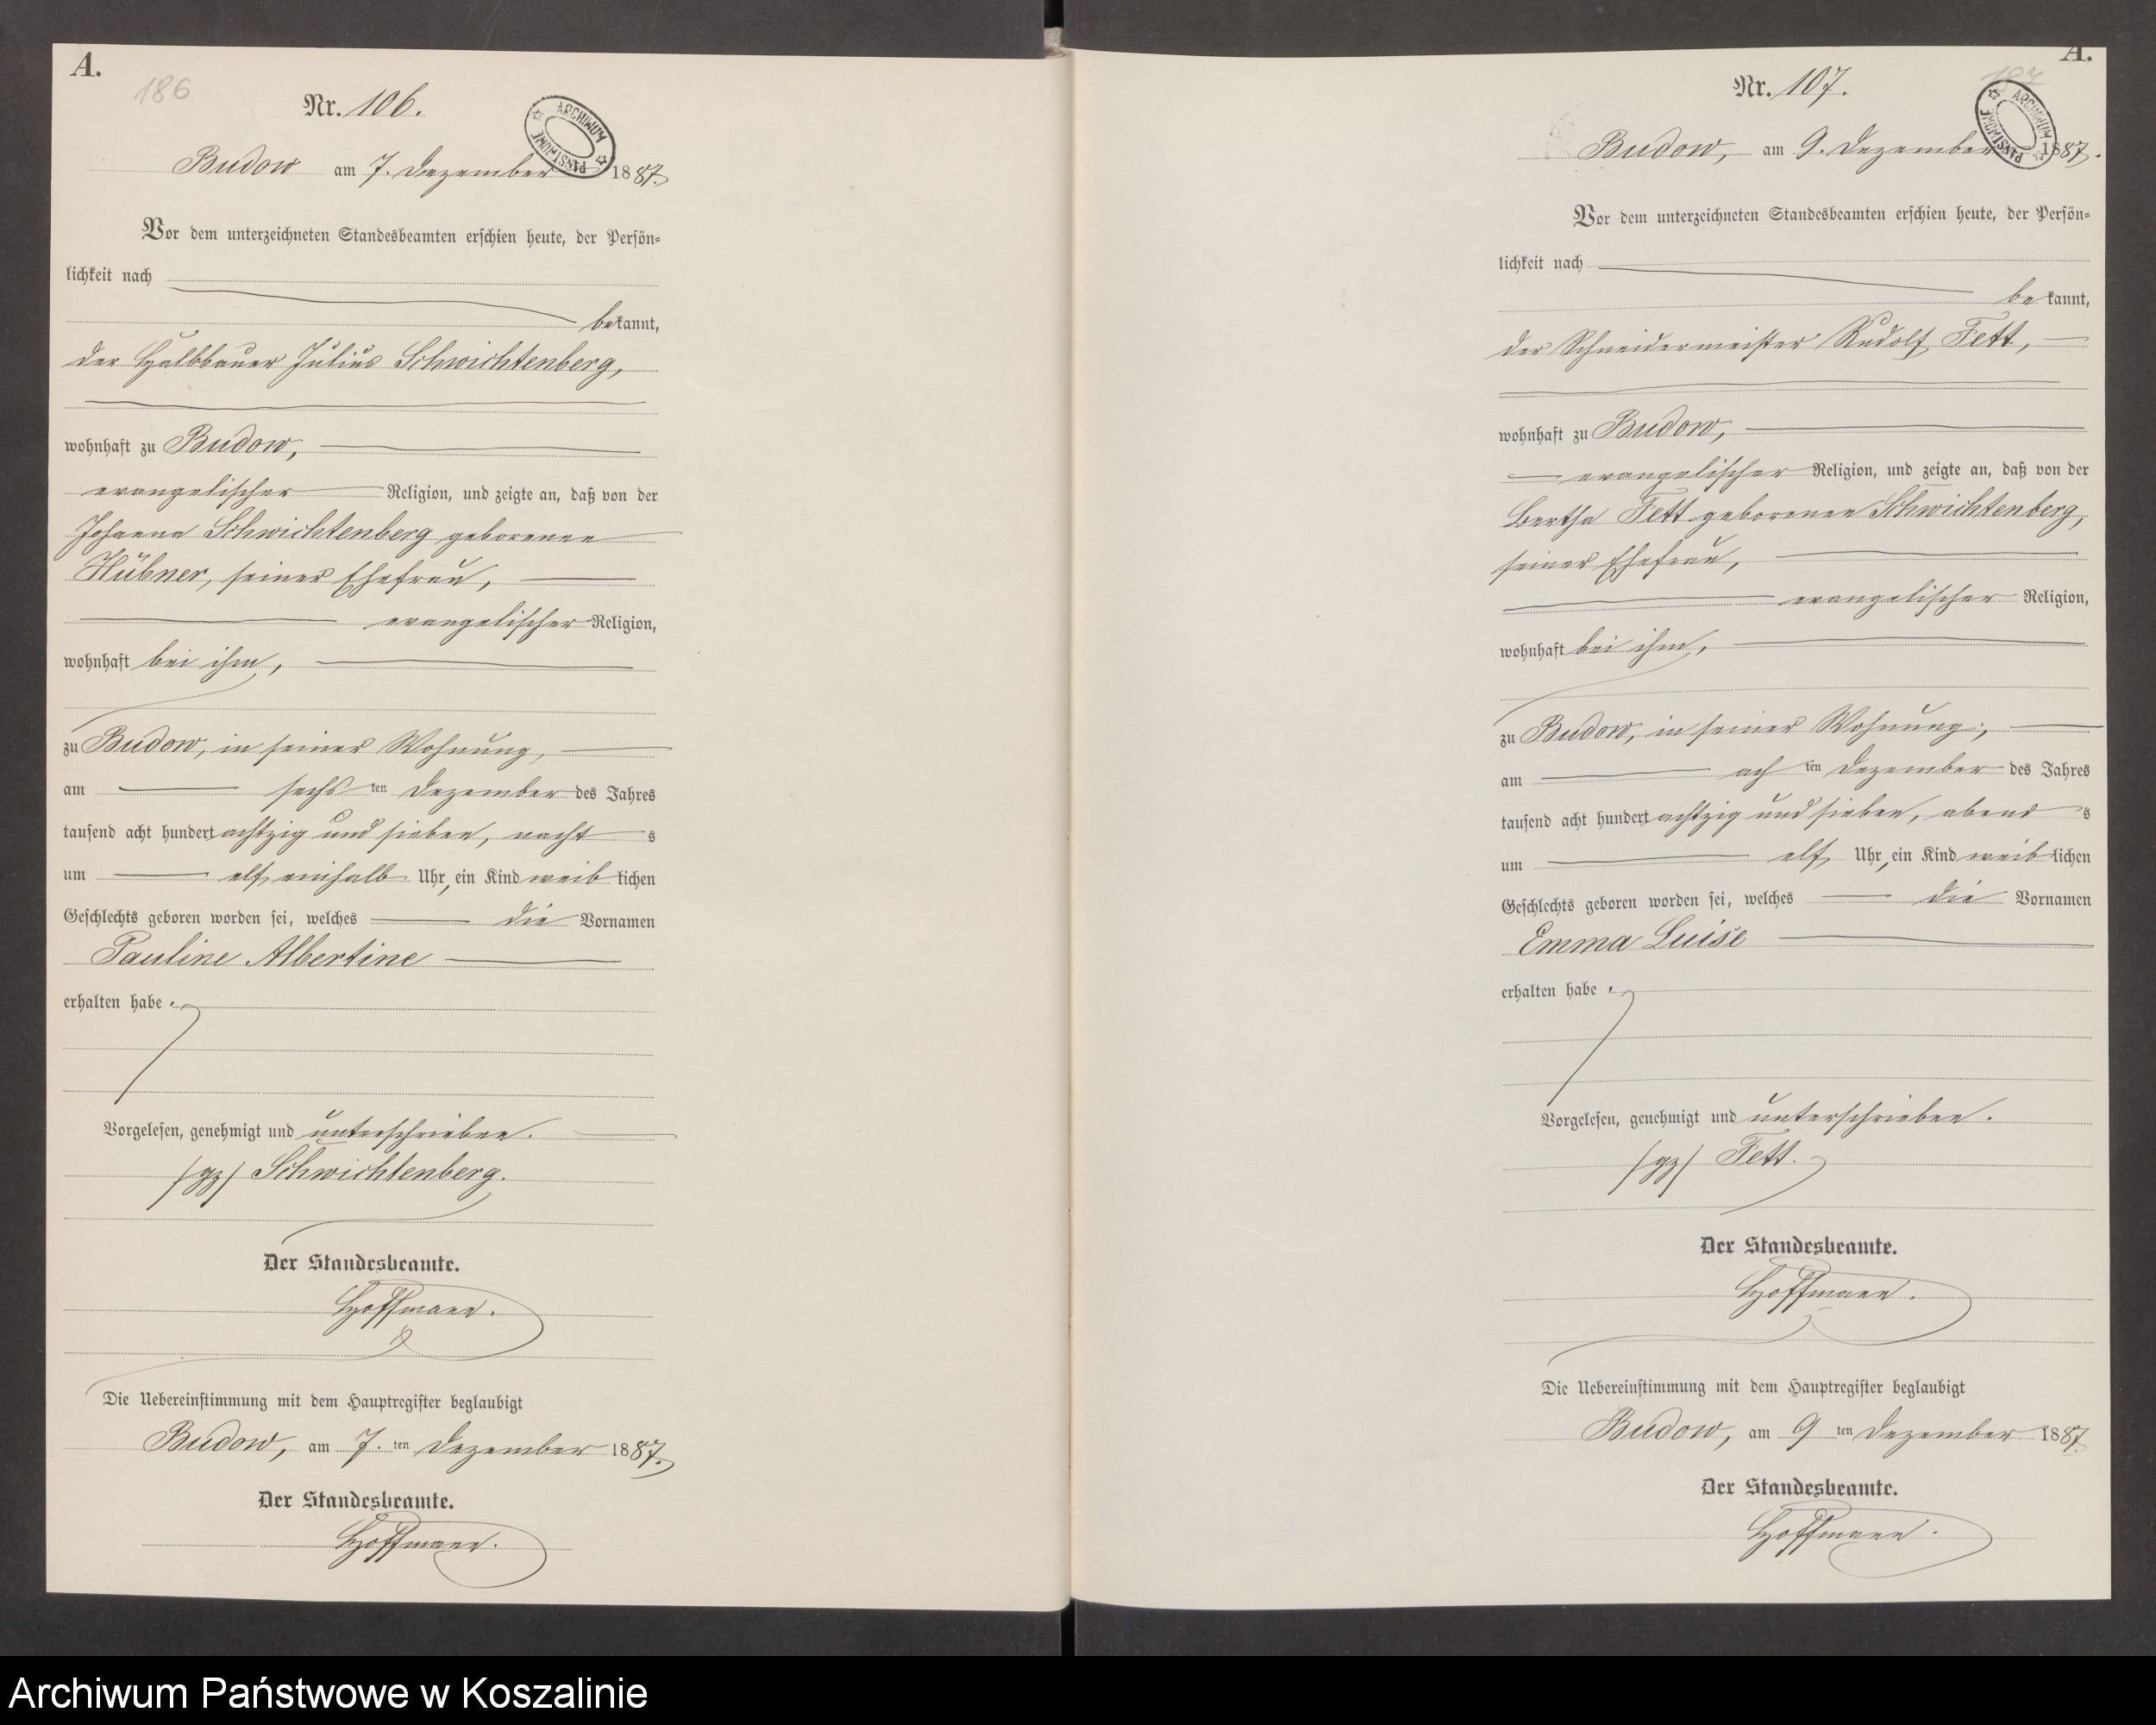 A.
186
Nr. 106.
ARCHIWUM PAŃSTWOWE
Budow am 7. Dezember 1887.
Vor dem unterzeichneten Standesbeamten erschien heute, der Persön=
lichkeit nach
bekannt,
der Halbbauer Julius Schwichtenberg,
wohnhaft zu Budow,
evangelischer Religion, und zeigte an, daß von der
Johanna Schwichtenberg geborenen
Hübner, seiner Ehefrau,
evangelischer Religion,
wohnhaft bei ihm,
zu Budow, in seiner Wohnung,
am sechs ten Dezember des Jahres
tausend acht hundert achtzig und sieben, nacht s
um elf einhalb Uhr, ein Kind weib lichen
Geschlechts geboren worden sei, welches die Vornamen
Pauline Albertine
erhalten habe.
Vorgelesen, genehmigt und unterschrieben.
/gz/ Schwichtenberg.
Der Standesbeamte.
Hoffmann.
Die Uebereinstimmung mit dem Hauptregister beglaubigt
Budow, am 7. ten Dezember 1887.
Der Standesbeamte.
Hoffmann.
A.
187
Nr. 107.
ARCHIWUM PAŃSTWOWE
Budow, am 9. Dezember 1887.
Vor dem unterzeichneten Standesbeamten erschien heute, der Persön=
lichkeit nach
be kannt,
der Schneidermeister Rudolf Fett,
wohnhaft zu Budow,
evangelischer Religion, und zeigte an, daß von der
Bertha Fett geborenen Schwichtenberg,
seiner Ehefrau,
evangelischer Religion,
wohnhaft bei ihm,
zu Budow, in seiner Wohnung,
am ach ten Dezember des Jahres
tausend acht hundert achtzig und sieben, abend s
um elf Uhr, ein Kind weib lichen
Geschlechts geboren worden sei, welches die Vornamen
Emma Luise
erhalten habe.
Vorgelesen, genehmigt und unterschrieben.
/gz/ Fett.
Der Standesbeamte.
Hoffmann.
Die Uebereinstimmung mit dem Hauptregister beglaubigt
Budow, am 9 ten Dezember 1887.
Der Standesbeamte.
Hoffmann.
Archiwum Państwowe w Koszalinie